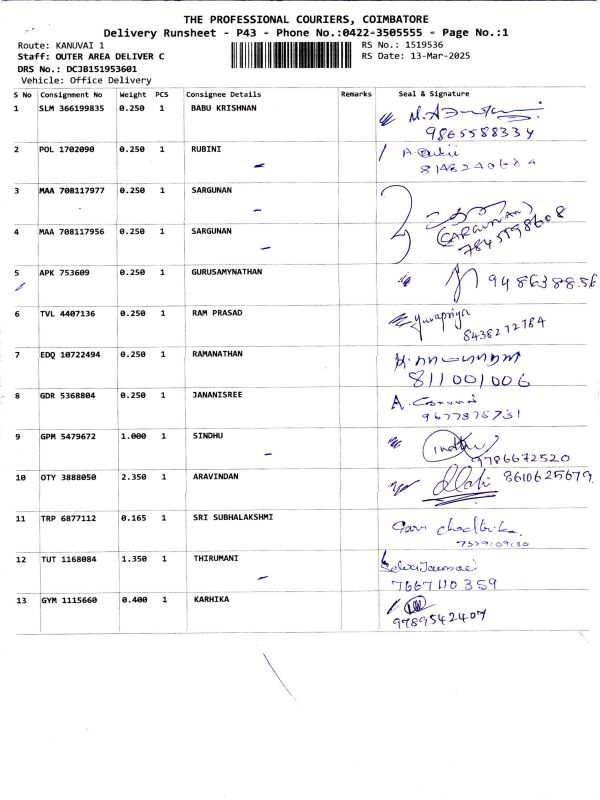 THE PROFESSIONAL COURIERS, COIMBATORE
Delivery Runsheet - P43 - Phone No.:0422-3505555 - Page No.:1
Route: KANUVAI 1 RS No.: 1519536
Staff: OUTER AREA DELIVER C RS Date: 13-Mar-2025
DRS No.: DCJB151953601
Vehicle: Office Delivery
S No Consignment No Weight PCS Consignee Details Remarks Seal & Signature
1 SLM 366199835 0.250 1 BABU KRISHNAN
9865588334
2 POL 1702090 0.250 1 RUBINI
3 MAA 708117977 0.250 1 SARGUNAN
4 MAA 708117956 0.250 1 SARGUNAN
(SARGUNAN)
7845598608
5 APK 753609 0.250 1 GURUSAMYNATHAN
948638856
6 TVL 4407136 0.250 1 RAM PRASAD Yuvapriya
8438272784
7 EDQ 10722494 0.250 1 RAMANATHAN
811001006
8 GDR 5368804 0.250 1 JANANISREE
9 GPM 5479672 1.000 1 SINDHU
9786672520
10 OTY 3888050 2.350 1 ARAVINDAN 8610625679
11 TRP 6877112 0.165 1 SRI SUBHALAKSHMI
12 TUT 1168084 1.350 1 THIRUMANI
7667110359
13 GYM 1115660 0.400 1 KARHIKA
9789542407